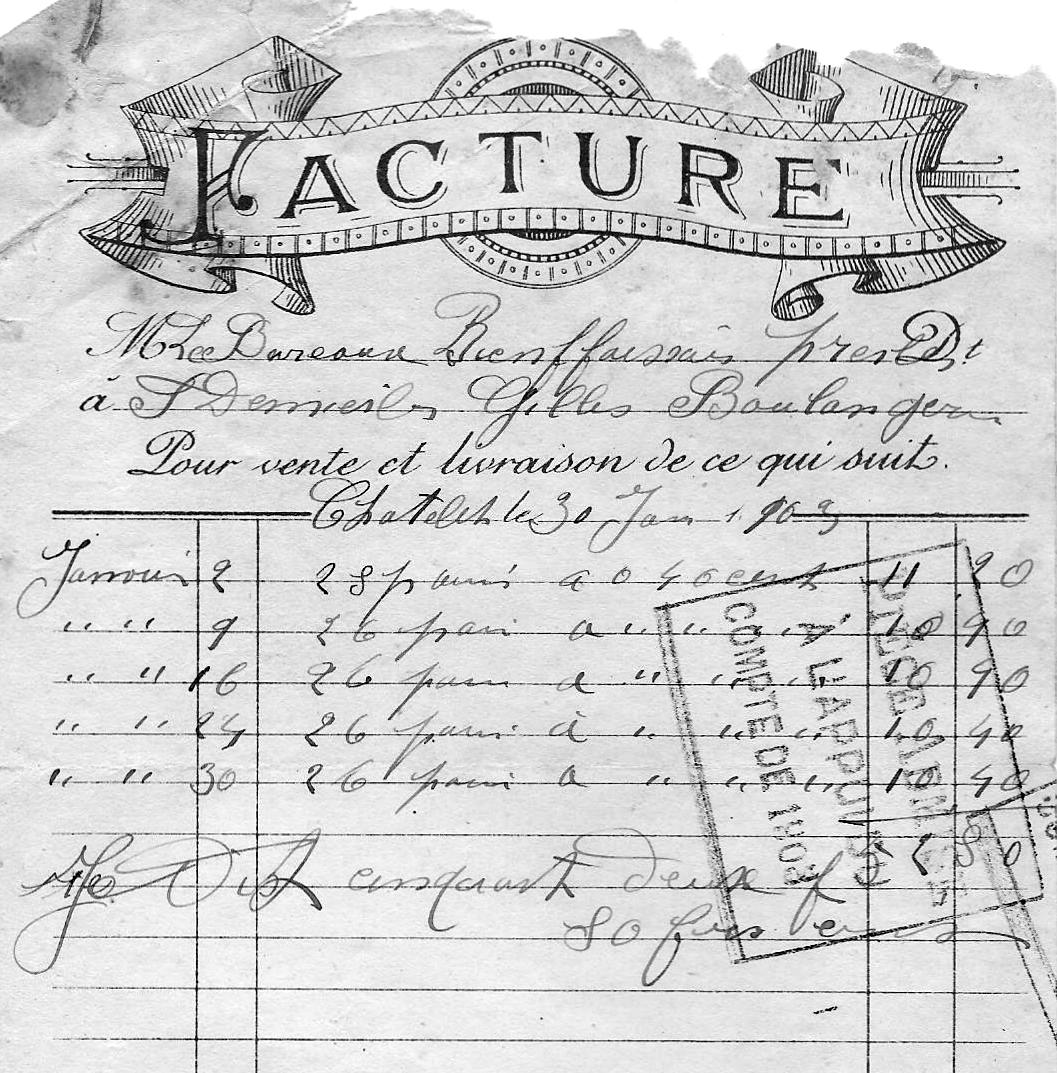 FACTURE
Mr Le Bureaux Bienffaisais pren Dt
à S Demeil Gilles Boulanger
Pour vente et livraison de ce qui suit.
Chatelet le 30 Janv 1903
Janvier 2 28 pains a 0 40 cent 11 20
" " 9 26 pain a " " " " 10 90
" " 16 26 pain a " " " 10 90
" " 24 26 pain à " " " 10 40
" " 30 26 pain a " " " 10 40
52 80
cinquant deux f
80
À L'APPUI DU
COMPTE DE 1903